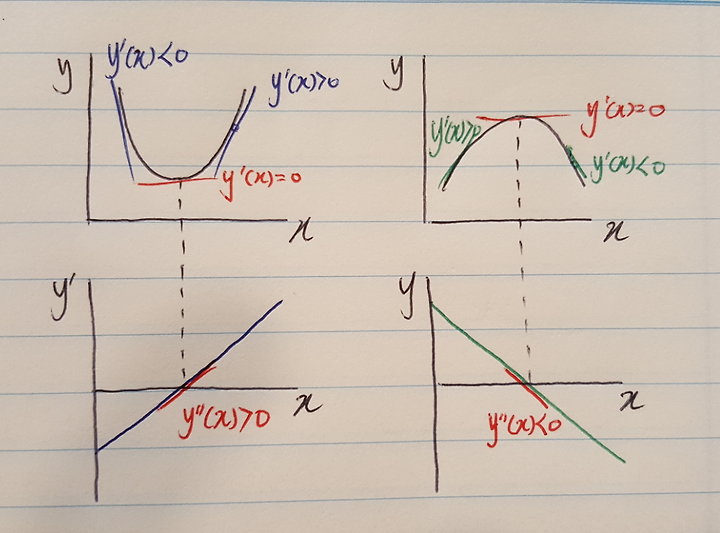 y
y'(x)<0
y'(x)>0
y'(x)=0
x
y
y'(x)>0
y'(x)=0
y'(x)<0
x
y'
y''(x)>0
x
y
y''(x)<0
x